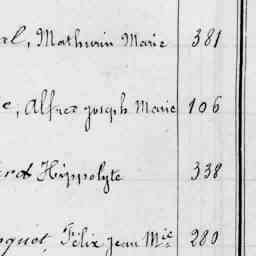 al, Mathurin Marie 381
e, Alfred Joseph Marie 106
Hippolyte 338
quot, Félix Jean Mie 280